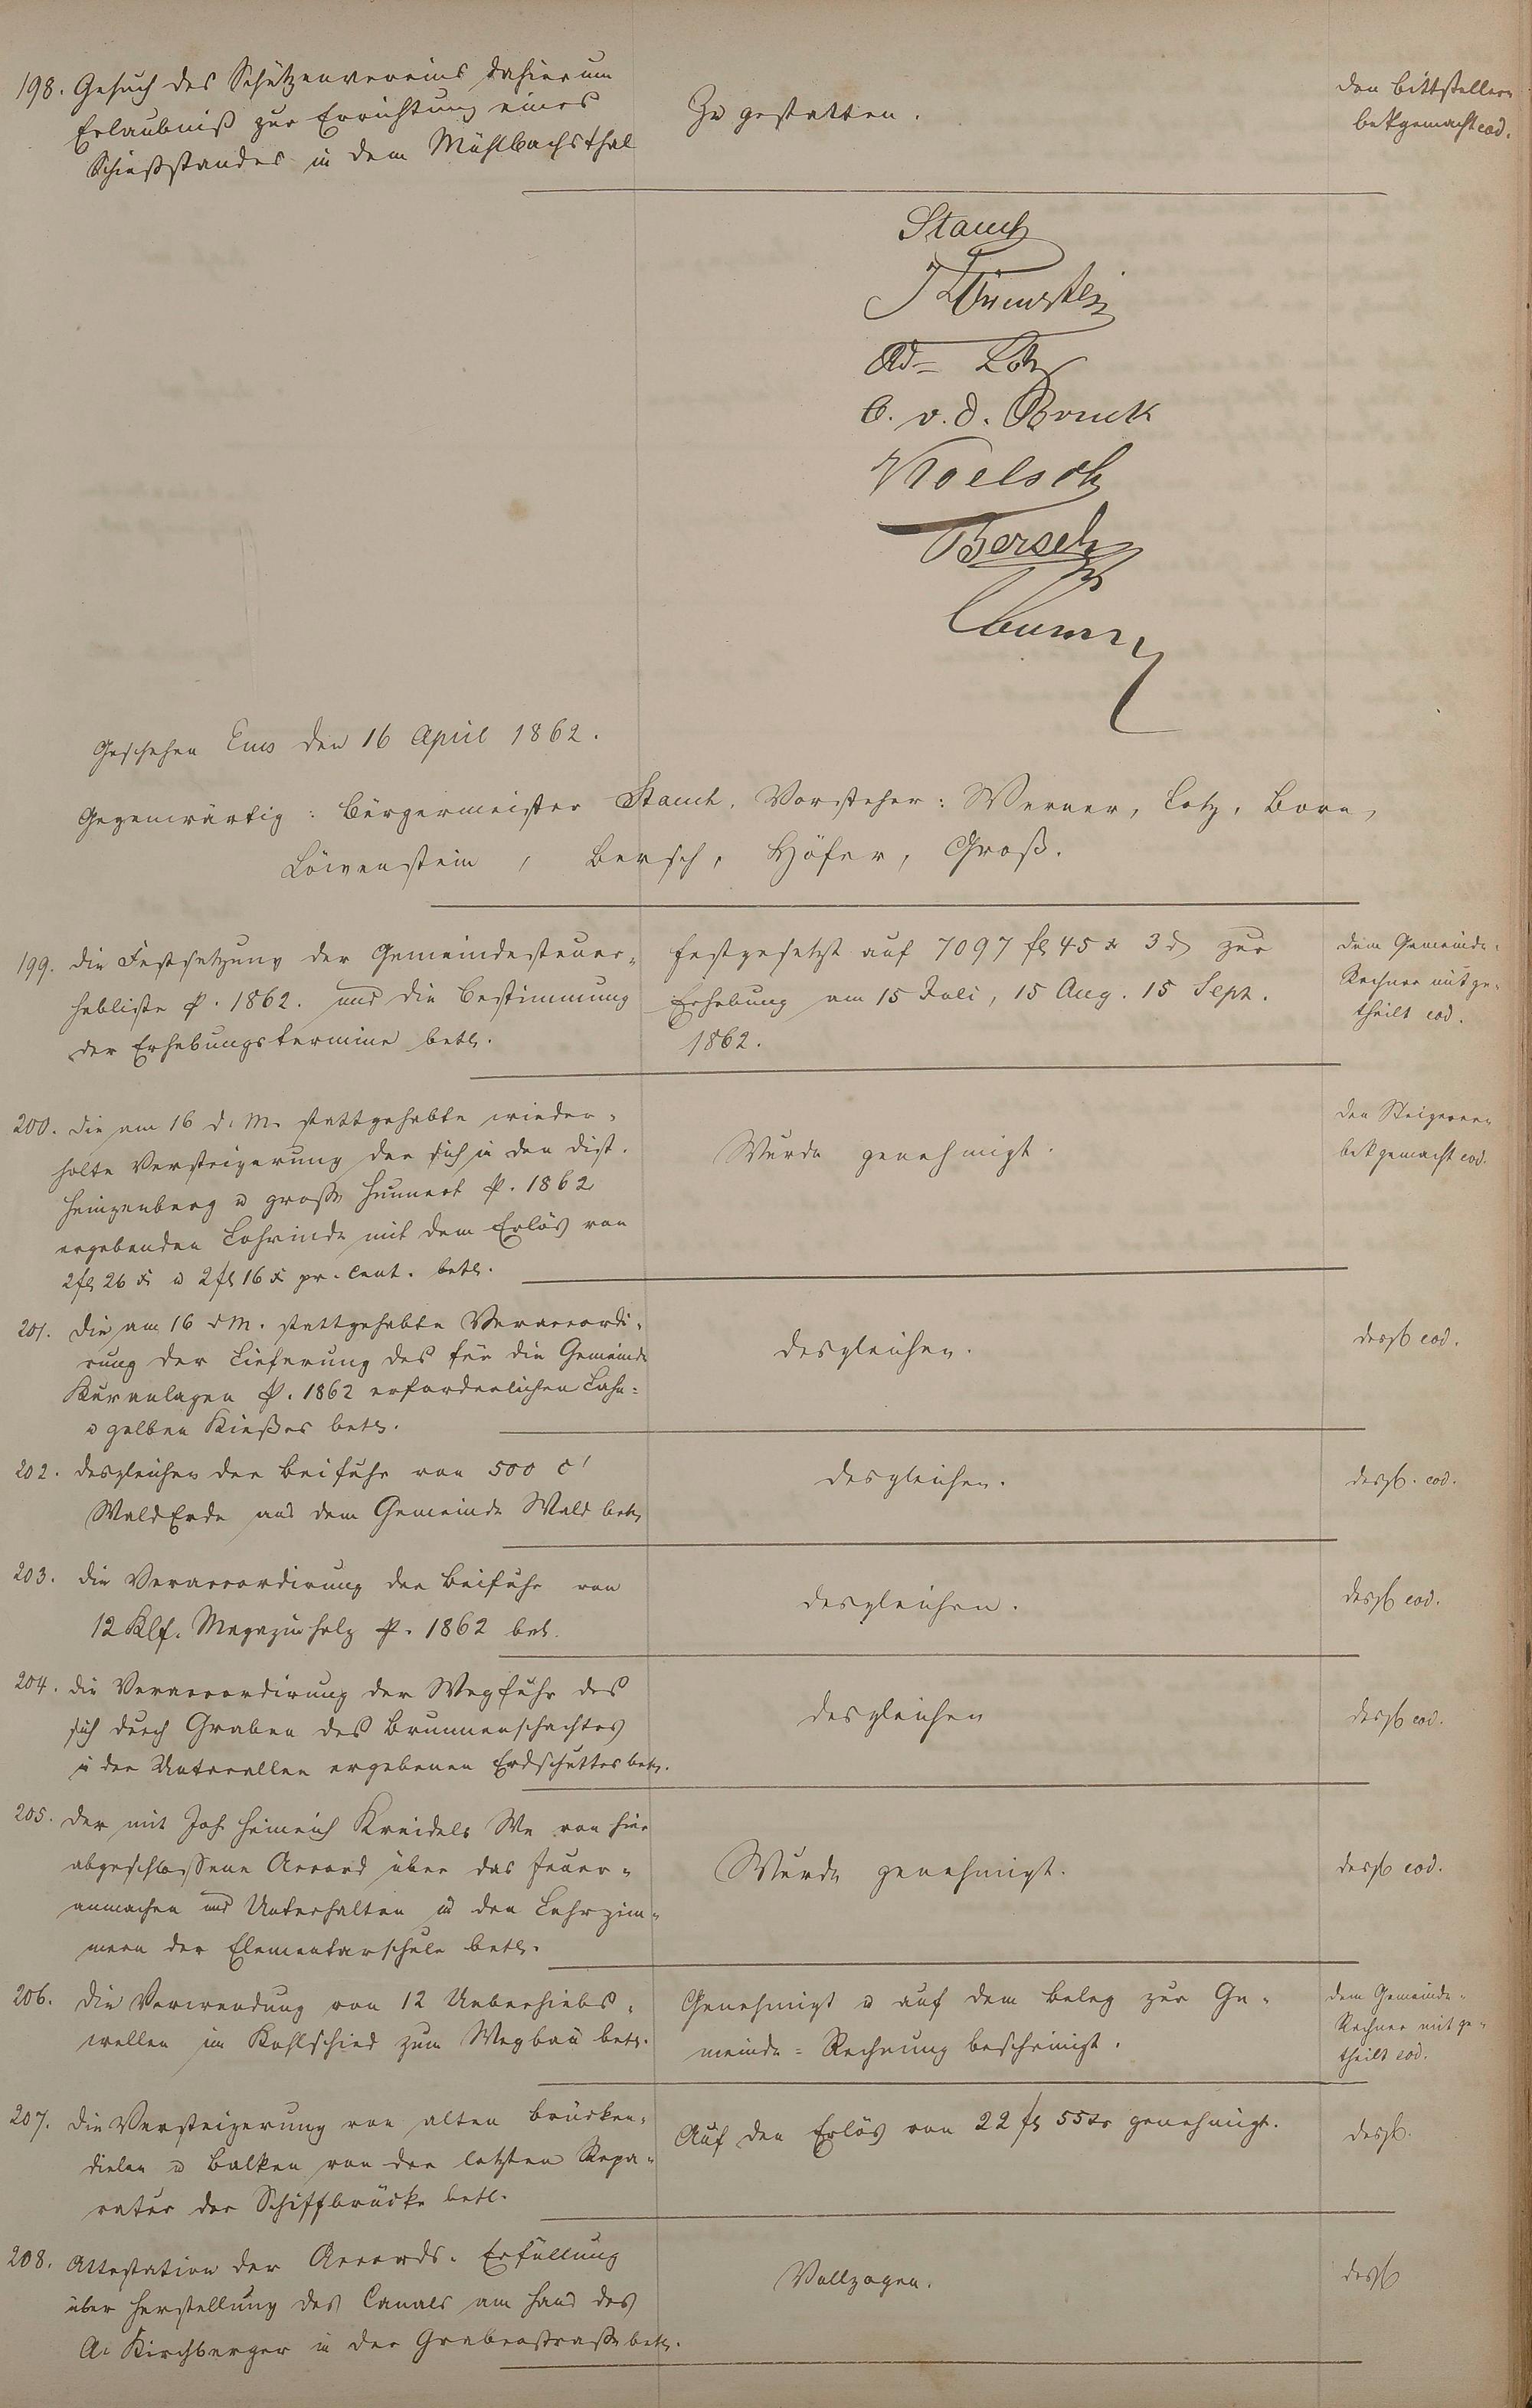 198. Gesuch des Schützenvereins dahier um
Erlaubniß zur Errichtung eines
Schießstandes in dem Mühlbachsthal
Zu gestatten.
den Bittstellern
bekgemacht eod.
Stauch
J Löwenstein
Ad. Lotz
C. v. d. Bruck
Koelsch
Bersch
Geschehen Ems den 16 April 1862.
Gegenwärtig: Bürgermeister Stauch. Vorsteher: Werner, Lotz, Born,
Löwenstein, Bersch, Höfer, Groß.
199. die Festsetzung der Gemeindesteuer-
hebliste p. 1862. und die Bestimmung
der Erhebungstermine betr.
festgesetzt auf 7097 fl 45 x 3 d zur
Erhebung am 15 Juli, 15 Aug. 15 Sept.
1862.
dem Gemeinde-
Rechner mitge-
theilt eod.
200. die am 16 d. M. stattgehabte wieder-
holte Versteigerung der sich in den Dist.
Heinzenberg u große Hünnert p. 1862
ergebenden Lohrinde mit dem Erlös von
2 fl 26 x u 2 fl 16 x pr. Cent. betr.
Wurde genehmigt.
den Steigerern
bekgemacht eod.
201. die am 16 d M. stattgehabte Veraccordi-
rung der Lieferung des für die Gemeinde
Kuranlagen p. 1862 erforderlichen Lahn-
u gelben Kießes betr.
desgleichen.
desgl eod.
202. desgleichen der Beifuhr von 500 c'
Wald Erde aus dem Gemeinde Wald betr
desgleichen.
desgl. eod.
203. die Veraccordirung der Beifuhr von
12 Klf. Magazinholz p. 1862 betr.
desgleichen.
desgl eod.
204. die Veraccordirung der Wegfuhr des
sich durch Graben des Brunnenschachtes
in der Unterallee ergebenen Erdschuttes betr.
desgleichen
desgl eod.
205. der mit Joh Heinrich Kreidels We von hier
abgeschlossene Accord über das Feuer-
anmachen und Unterhalten in den Lehrzim-
mern der Elementarschule betr.
Wurde genehmigt.
desgl eod.
206. die Verwendung von 12 Ueberhiebs-
wellen im Kohlschied zum Wegbau betr.
Genehmigt u auf dem Beleg zur Ge-
meinde-Rechnung bescheinigt.
dem Gemeinde-
Rechner mitge-
theilt eod.
207. die Versteigerung von alten Brücken-
dielen u Balken von der letzten Repa-
ratur der Schiffbrücke betr.
Auf den Erlös von 22 fl 55 xr genehmigt.
desgl.
208. Attestation der Accords-Erfüllung
über Herstellung des Canals am Haus des
A. Kirchberger in der Grabenstraße betr.
Vollzogen.
desgl